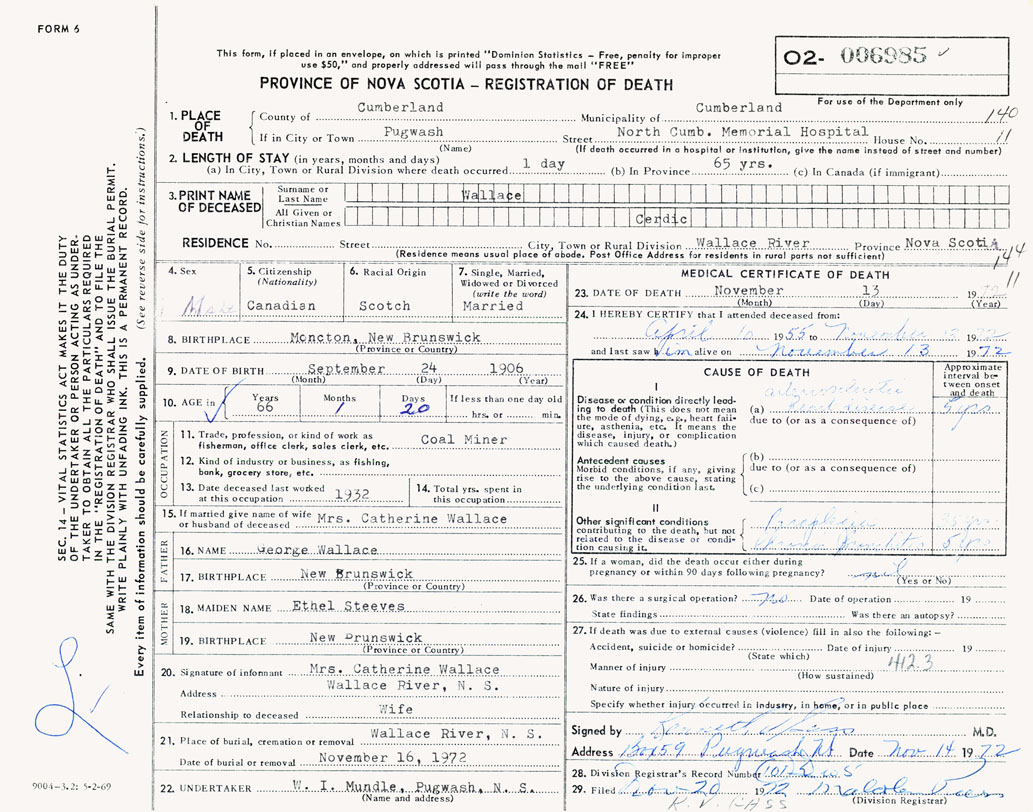 FORM 6
This form, if placed in an envelope, on which is printed "Dominion Statistics – Free, penalty for improper
use $50," and properly addressed will pass through the mail "FREE"
PROVINCE OF NOVA SCOTIA – REGISTRATION OF DEATH
O2- 006985
For use of the Department only
140
11
1. PLACE OF DEATH
County of Cumberland Municipality of Cumberland
If in City or Town Pugwash Street North Cumb. Memorial Hospital House No.
(Name) (If death occurred in a hospital or institution, give the name instead of street and number)
2. LENGTH OF STAY (in years, months and days)
(a) In City, Town or Rural Division where death occurred 1 day (b) In Province 65 yrs. (c) In Canada (if immigrant)
3. PRINT NAME OF DECEASED
Surname or Last Name Wallace
All Given or Christian Names Cerdic
RESIDENCE No. Street City, Town or Rural Division Wallace River Province Nova Scotia
(Residence means usual place of abode. Post Office Address for residents in rural parts not sufficient)
144
11
4. Sex Male
5. Citizenship (Nationality) Canadian
6. Racial Origin Scotch
7. Single, Married, Widowed or Divorced (write the word) Married
8. BIRTHPLACE Moncton, New Brunswick
(Province or Country)
9. DATE OF BIRTH September 24 1906
(Month) (Day) (Year)
10. AGE in Years 66 Months 1 Days 20 If less than one day old hrs. or min.
OCCUPATION
11. Trade, profession, or kind of work as
fisherman, office clerk, sales clerk, etc. Coal Miner
12. Kind of industry or business, as fishing,
bank, grocery store, etc.
13. Date deceased last worked
at this occupation 1932
14. Total yrs. spent in
this occupation
15. If married give name of wife
or husband of deceased Mrs. Catherine Wallace
FATHER
16. NAME George Wallace
17. BIRTHPLACE New Brunswick
(Province or Country)
MOTHER
18. MAIDEN NAME Ethel Steeves
19. BIRTHPLACE New Brunswick
(Province or Country)
20. Signature of informant Mrs. Catherine Wallace
Address Wallace River, N. S.
Relationship to deceased Wife
21. Place of burial, cremation or removal Wallace River, N. S.
Date of burial or removal November 16, 1972
22. UNDERTAKER W. I. Mundle, Pugwash, N. S.
(Name and address)
MEDICAL CERTIFICATE OF DEATH
23. DATE OF DEATH November 13 1972
(Month) (Day) (Year)
24. I HEREBY CERTIFY that I attended deceased from:
April 10 1955 to November 13 1972
and last saw him alive on November 13 1972
CAUSE OF DEATH
Approximate interval between onset and death
I
Disease or condition directly leading to death (This does not mean the mode of dying, e.g., heart failure, asthenia, etc. It means the disease, injury, or complication which caused death.)
(a) heart disease 5 yrs
due to (or as a consequence of)
Antecedent causes
Morbid conditions, if any, giving rise to the above cause, stating the underlying condition last.
(b)
due to (or as a consequence of)
(c)
II
Other significant conditions
contributing to the death, but not related to the disease or condition causing it.
5 yrs
25. If a woman, did the death occur either during
pregnancy or within 90 days following pregnancy?
(Yes or No)
26. Was there a surgical operation? no Date of operation 19
State findings Was there an autopsy?
27. If death was due to external causes (violence) fill in also the following: –
Accident, suicide or homicide? Date of injury 19
(State which)
412.3
Manner of injury
(How sustained)
Nature of injury
Specify whether injury occurred in industry, in home, or in public place
Signed by M.D.
Address Box 59 Pugwash NS Date Nov 14 1972
28. Division Registrar's Record Number
29. Filed Nov 20 1972
(Division Registrar)
SEC. 14 – VITAL STATISTICS ACT MAKES IT THE DUTY
OF THE UNDERTAKER OR PERSON ACTING AS UNDER-
TAKER TO OBTAIN ALL THE PARTICULARS REQUIRED
IN THE "REGISTRATION OF DEATH" AND TO FILE THE
SAME WITH THE DIVISION REGISTRAR WHO SHALL ISSUE THE BURIAL PERMIT.
WRITE PLAINLY WITH UNFADING INK. THIS IS A PERMANENT RECORD.
Every item of information should be carefully supplied. (See reverse side for instructions.)
9004-3.2: 5-2-69